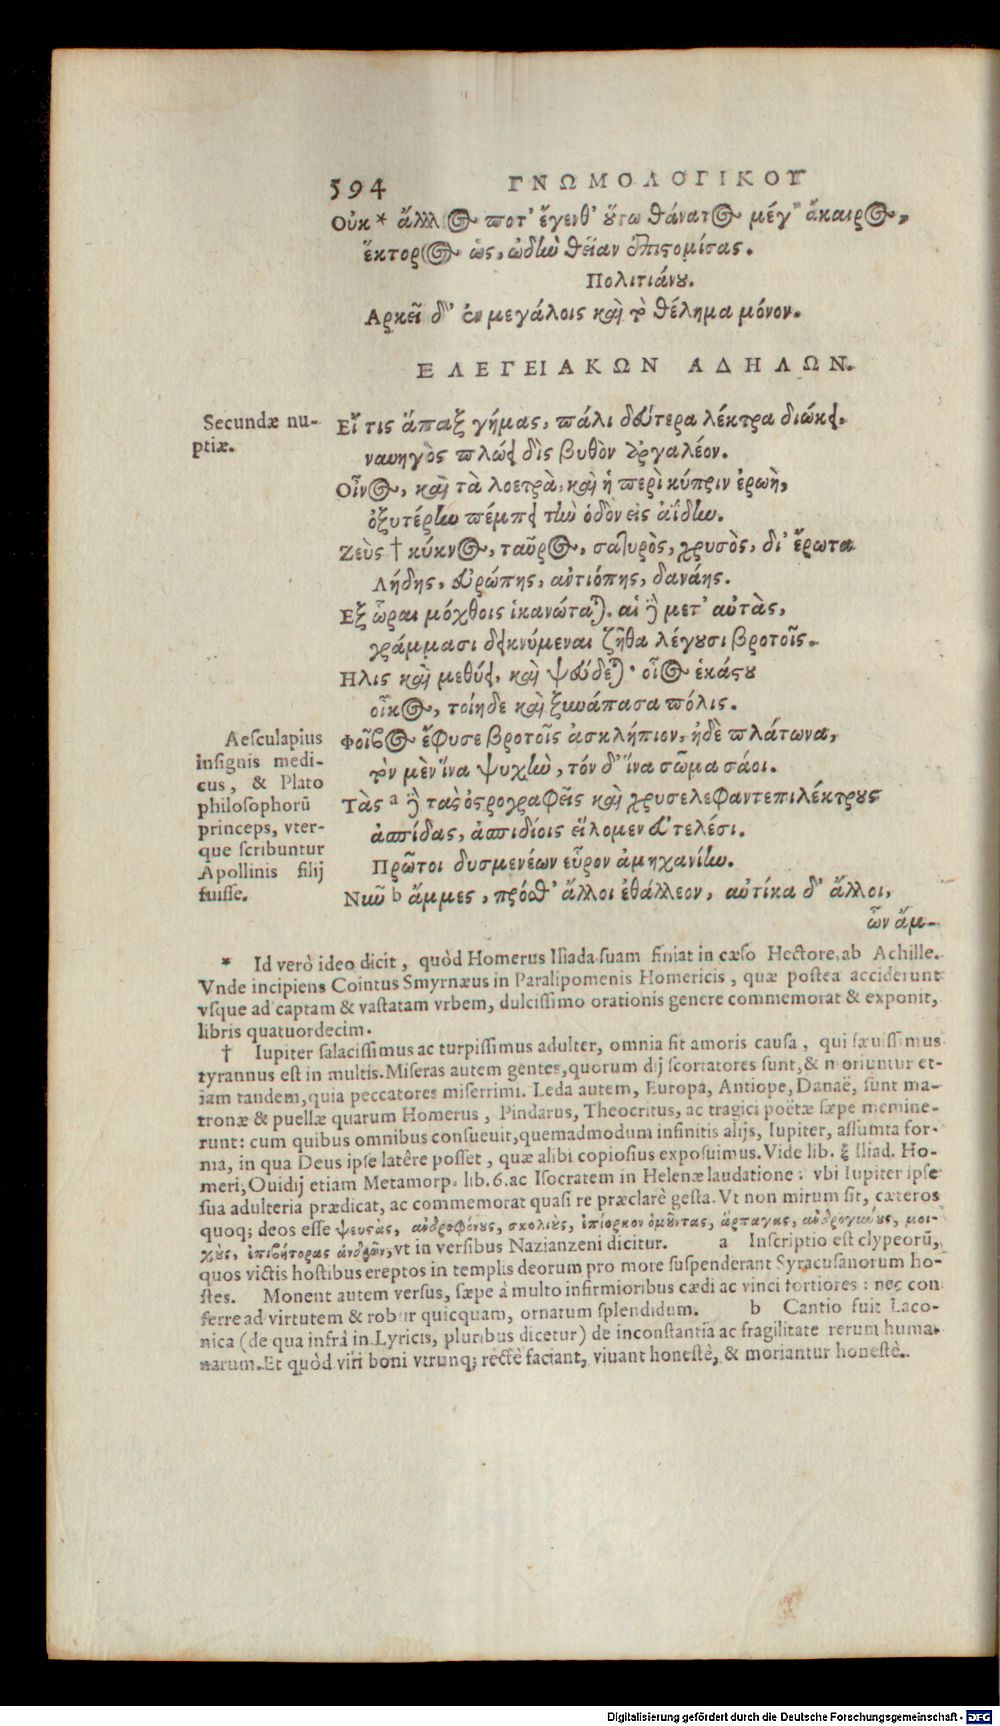 594 ΓΝΩΜΟΛΟΓΙΚΟΥ
Οὐκ * ἄλλος ποτ' ἔγενθ' οὕτω θάνατος μέγ' ἄκαιρος,
ἕκτορος ὡς, ὠδὴν θείαν ἐπιστομίσας.
Πολιτιάνου.
Αρκεῖ δ' ἐν μεγάλοις καὶ τὸ θέλημα μόνον.
ΕΛΕΓΕΙΑΚΩΝ ΑΔΗΛΩΝ.
Secundæ nu-
ptiæ.
Εἴ τις ἅπαξ γήμας, πάλι δεύτερα λέκτρα διώκει,
ναυηγὸς πλώει δὶς βυθὸν ἀργαλέον.
Οἶνος, καὶ τὰ λοετρὰ, καὶ ἡ περὶ κύπριν ἐρωὴ,
ὀξυτέρην πέμπει τὴν ὁδὸν εἰς ἀΐδην.
Ζεὺς † κύκνος, ταῦρος, σατυρὸς, χρυσὸς, δι' ἔρωτα
Λήδης, εὐρώπης, αὐτιόπης, δανάης.
Εξ ὧραι μόχθοις ἱκανώταται. αἱ δὲ μετ' αὐτὰς,
γράμμασι δεικνύμεναι ζῆθα λέγουσι βροτοῖς.
Ηλις καὶ μεθύει, καὶ ψεύδεται· οἷος ἑκάστου
οἶκος, τοίηδε καὶ ξυνάπασα πόλις.
Aesculapius
insignis medi-
cus, & Plato
philosophorũ
princeps, vter-
que scribuntur
Apollinis filij
fuisse.
Φοῖβος ἔφυσε βροτοῖς ἀσκλήπιον, ἠδὲ πλάτωνα,
τὸν μὲν ἵνα ψυχὴν, τόν δ' ἵνα σῶμα σάοι.
Τὰς a δὲ τὰς ὀστρογραφεῖς καὶ χρυσελεφαντεπιλέκτρους
ἀσπίδας, ἀσπιδίοις εἵλομεν εὐτελέσι.
Πρῶτοι δυσμενέων εὗρον ἀμηχανίην.
Νῦν b ἄμμες, πρόσθ' ἄλλοι ἐθάλλεον, αὐτίκα δ' ἄλλοι,
ὧν ἄμ-
* Id verò ideo dicit, quòd Homerus Iliada suam finiat in cæso Hectore, ab Achille.
Vnde incipiens Cointus Smyrnæus in Paralipomenis Homericis, quæ postea acciderunt
vsque ad captam & vastatam vrbem, dulcissimo orationis genere commemorat & exponit,
libris quatuordecim.
† Iupiter salacissimus ac turpissimus adulter, omnia fit amoris causa, qui sæuissimus
tyrannus est in multis. Miseras autem gentes, quorum dij scortatores sunt, & moriuntur et-
iam tandem, quia peccatores miserrimi. Leda autem, Europa, Antiope, Danaë, sunt ma-
tronæ & puellæ quarum Homerus, Pindarus, Theocritus, ac tragici poëtæ sæpe memine-
runt: cum quibus omnibus consueuit, quemadmodum infinitis alijs, Iupiter, assumta for-
ma, in qua Deus ipse latêre posset, quæ alibi copiosius exposuimus. Vide lib. ξ Iliad. Ho-
meri, Ouidij etiam Metamorp. lib. 6. ac Isocratem in Helenæ laudatione: vbi Iupiter ipse
sua adulteria prædicat, ac commemorat quasi re præclarè gesta. Vt non mirum sit, cæteros
quoq; deos esse ψευστὰς, ἀνδροφόνους, σκολιοὺς, ἐπίορκον ὀμοῦντας, ἅρπαγας, ἀνδρογύνους, μοι-
χοὺς, ἐπιβήτορας ἀνδρῶν, vt in versibus Nazianzeni dicitur. a Inscriptio est clypeorũ,
quos victis hostibus ereptos in templis deorum pro more suspenderant Syracusanorum ho-
stes. Monent autem versus, sæpe à multo infirmioribus cædi ac vinci fortiores: nec con
ferre ad virtutem & robur quicquam, ornatum splendidum. b Cantio fuit Laco-
nica (de qua infrà in Lyricis, pluribus dicetur) de inconstantia ac fragilitate rerum huma-
narum. Et quòd viri boni vtrunq; rectè faciant, viuant honestè, & moriantur honestè.
Digitalisierung gefördert durch die Deutsche Forschungsgemeinschaft - DFG